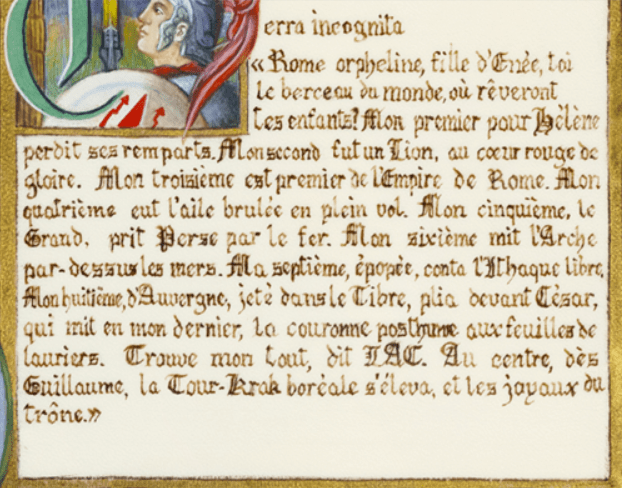 Terra incognita
« Rome orpheline, fille d'Enée, toi
le berceau du monde, où rêveront
tes enfants? Mon premier pour Hélène
perdit ses remparts. Mon second fut un Lion, au cœur rouge de
gloire. Mon troisième est premier de l'Empire de Rome. Mon
quatrième eut l'aile brulée en plein vol. Mon cinquième, le
Grand, prit Perse par le fer. Mon sixième mit l'Arche
par-dessus les mers. Ma septième, épopée, conta l'Ithaque libre.
Mon huitième, d'Auvergne, jeté dans le Tibre, plia devant César,
qui mit en mon dernier, la couronne posthume aux feuilles de
lauriers. Trouve mon tout, dit IAC. Au centre, dès
Guillaume, la Tour-Krak boréale s'éleva, et les joyaux du
trône.»